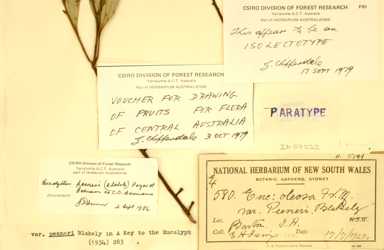 CSIRO DIVISION OF FOREST RESEARCH
Yarralumla A.C.T. Australia
Part of HERBARIUM AUSTRALIENSE
This appears to be an
ISOLECTOTYPE
G. Chippendale
17 SEPT 1979
CSIRO DIVISION OF FOREST RESEARCH
Yarralumla A.C.T. Australia
Part of HERBARIUM AUSTRALIENSE
VOUCHER FOR DRAWING
OF FRUITS FOR FLORA
OF CENTRAL AUSTRALIA
G. Chippendale 3 OCT 1979
PARATYPE
CSIRO Division of Forest Research
Yarralumla A.C.T. Australia
part of Herbarium Australiense
Eucalyptus peeneri (Blakely) Pryor et
Johnson
2 Sept 1986
NATIONAL HERBARIUM OF NEW SOUTH WALES
BOTANIC GARDENS, SYDNEY
580. Euc: oleosa F.v.M.
var. Peeneri, Blakely
Loc. Barton, S.A.
Coll.
var. peeneri Blakely in A Key to the Eucalypt
(1934) 283